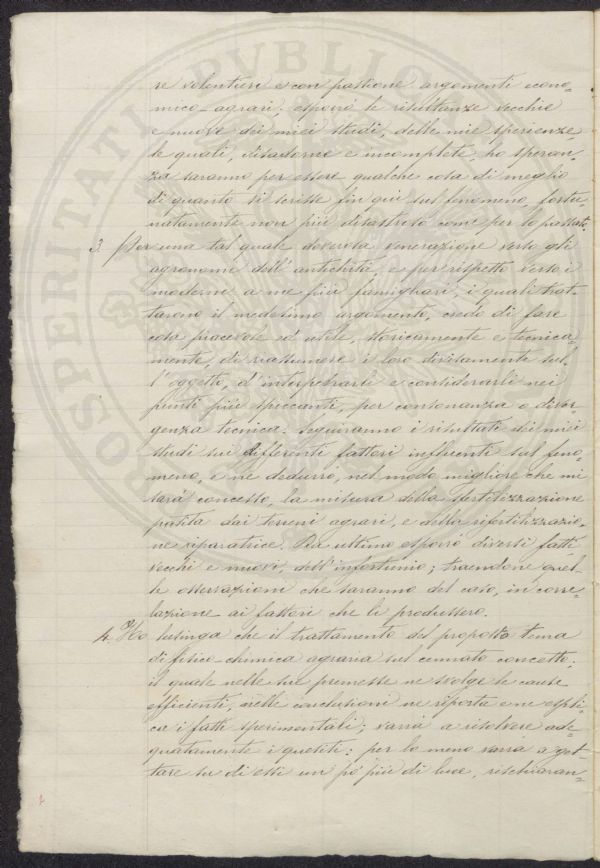 re volontieri e con passione argomenti econo-
mico-agrari, esporrò le risultanze vecchie
e nuove dei miei studi, delle mie sperienze
le quali, disadorne e incomplete, ho speran-
za saranno per essere qualche cosa di meglio
di quanto si scrisse fin qui sul fenomeno, fortu-
natamente non più disastroso come per lo passato.
3. Per una tal quale doverosa venerazione verso gli
agronomi dell'antichità, e per rispetto verso i
moderni a me più famigliari, i quali trat-
tarono il medesimo argomento, credo di fare
cosa piacevole ed utile, storicamente e tecnica-
mente, di riassumere i loro divisamente sul-
l'oggetto, d'interpetrarli e considerarli nei
punti più spiccanti, per consonanza o diver-
genza tecnica: seguiranno i risultati dei miei
studi sui differenti fattori influenti sul feno-
meno, e ne dedurrò, nel modo migliore che mi
sarà concesso, la misura della sfertilizzazione
patita dai terreni agrari, e della rifertilizzazio-
ne riparatrice. Per ultimo esporrò diversi fatti
vecchi e nuovi dell'infortunio; traendone quel-
le osservazioni che saranno del caso, in corre-
lazione ai fattori che li produssero.
4. Ho lusinga che il trattamento del proposto tema
di fisico-chimica agraria sul cennato concetto;
il quale nelle sue premesse ne svolge le cause
efficienti, nelle conclusioni ne riporta e ne espli-
ca i fatti sperimentali; varrà a risolvere ade-
guatamente i quesiti: per lo meno varrà a get-
tare su di essi un pò più di luce, rischiaran-
PVBLICAE
PROSPERITATI